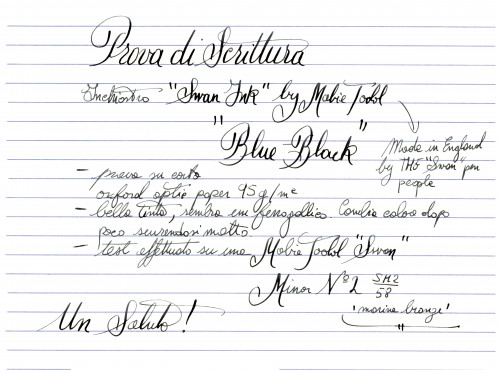 Prova di Scrittura
Inchiostro "Swan Ink" by Mabie Todd
"Blue Black"
Made in England
by THE "Swan" pen
people
- prova su carta
oxford optic paper 95 g/m²
- bella tinta, sembra un ferrogallico. Cambia colore dopo
poco scurendosi molto.
- test effettuato su una Mabie Todd "Swan"
Minor Nº 2 SM2/58
"marine bronze"
Un Saluto!